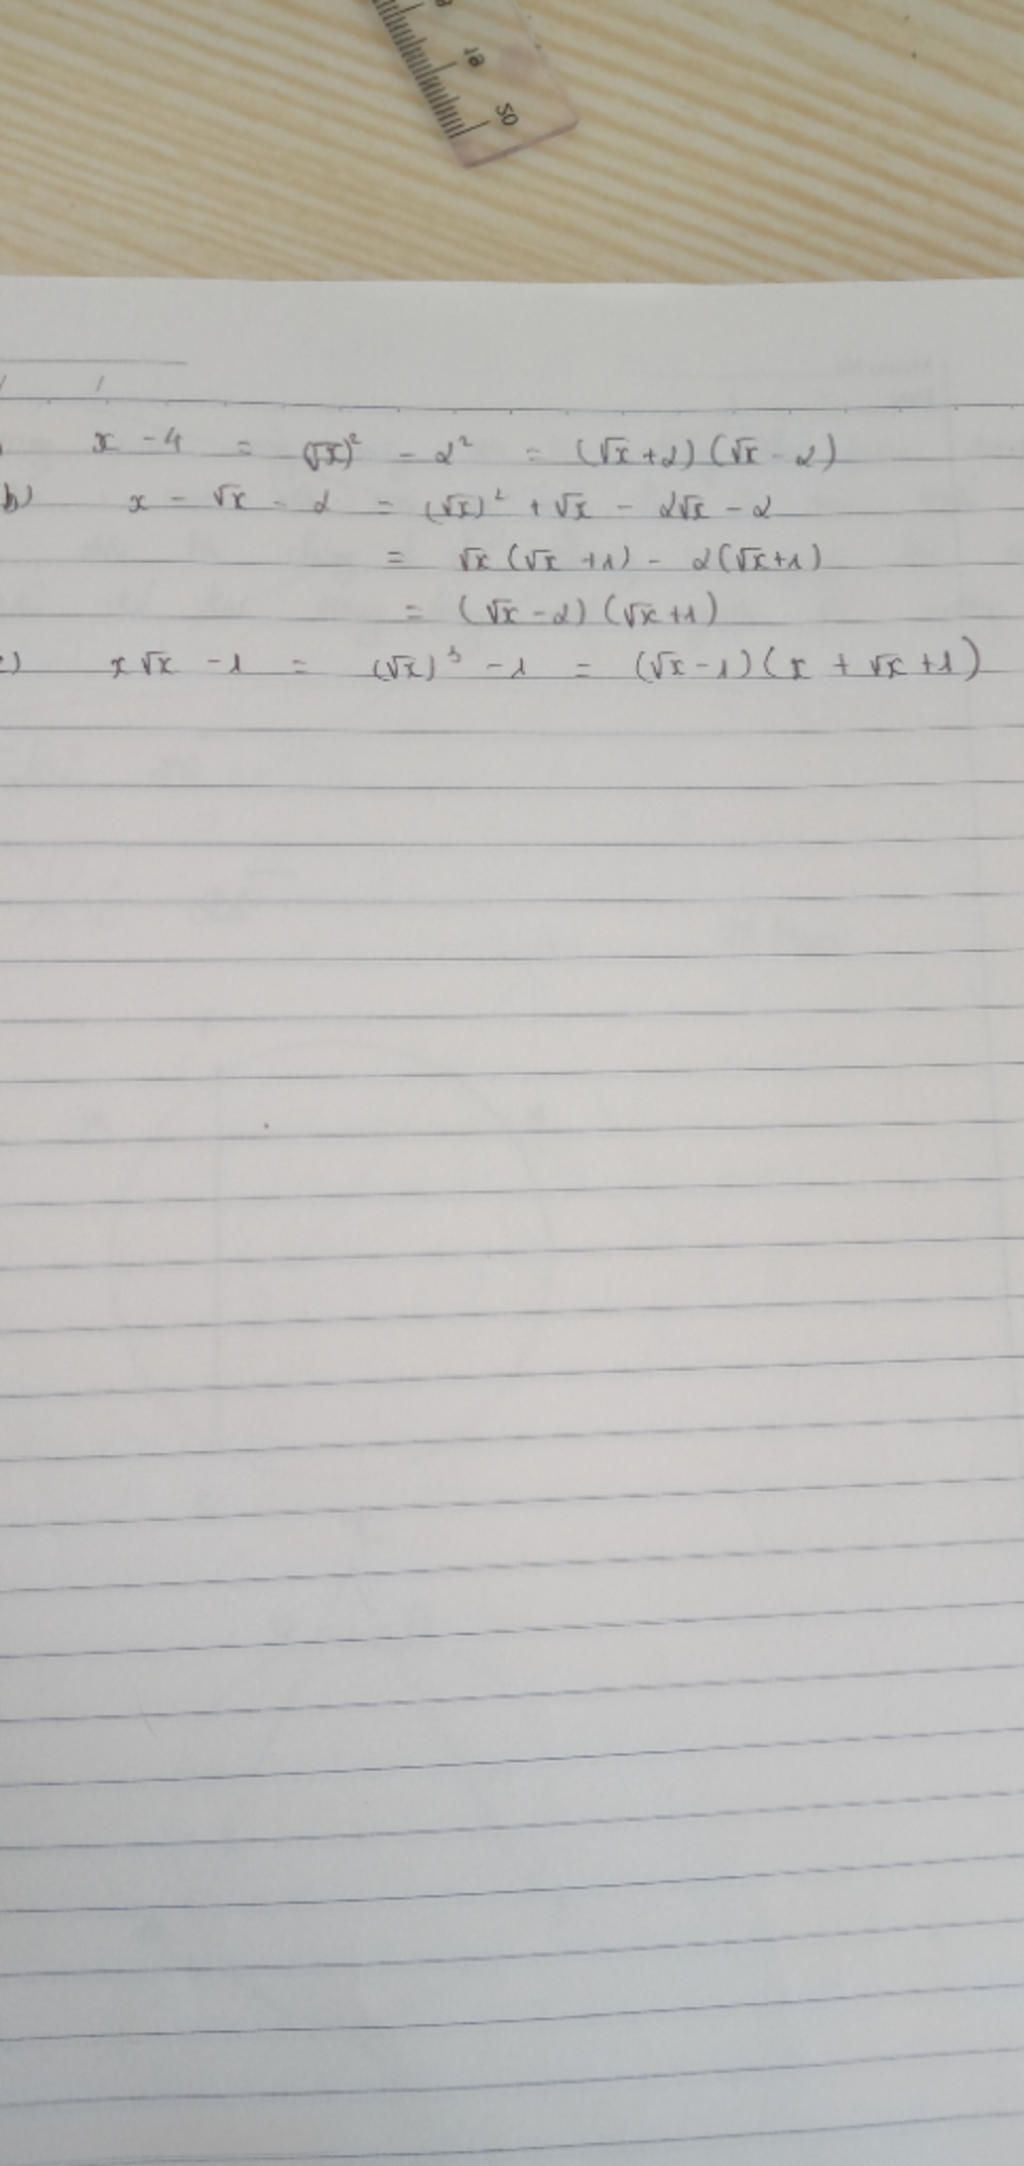 20
x - 4 = (√x)² - 2² = (√x + 2)(√x - 2)
b) x - √x - 2 = (√x)² + √x - 2√x - 2
= √x (√x + 1) - 2(√x + 1)
= (√x - 2)(√x + 1)
c) x√x - 1 = (√x)³ - 1 = (√x - 1)(x + √x + 1)